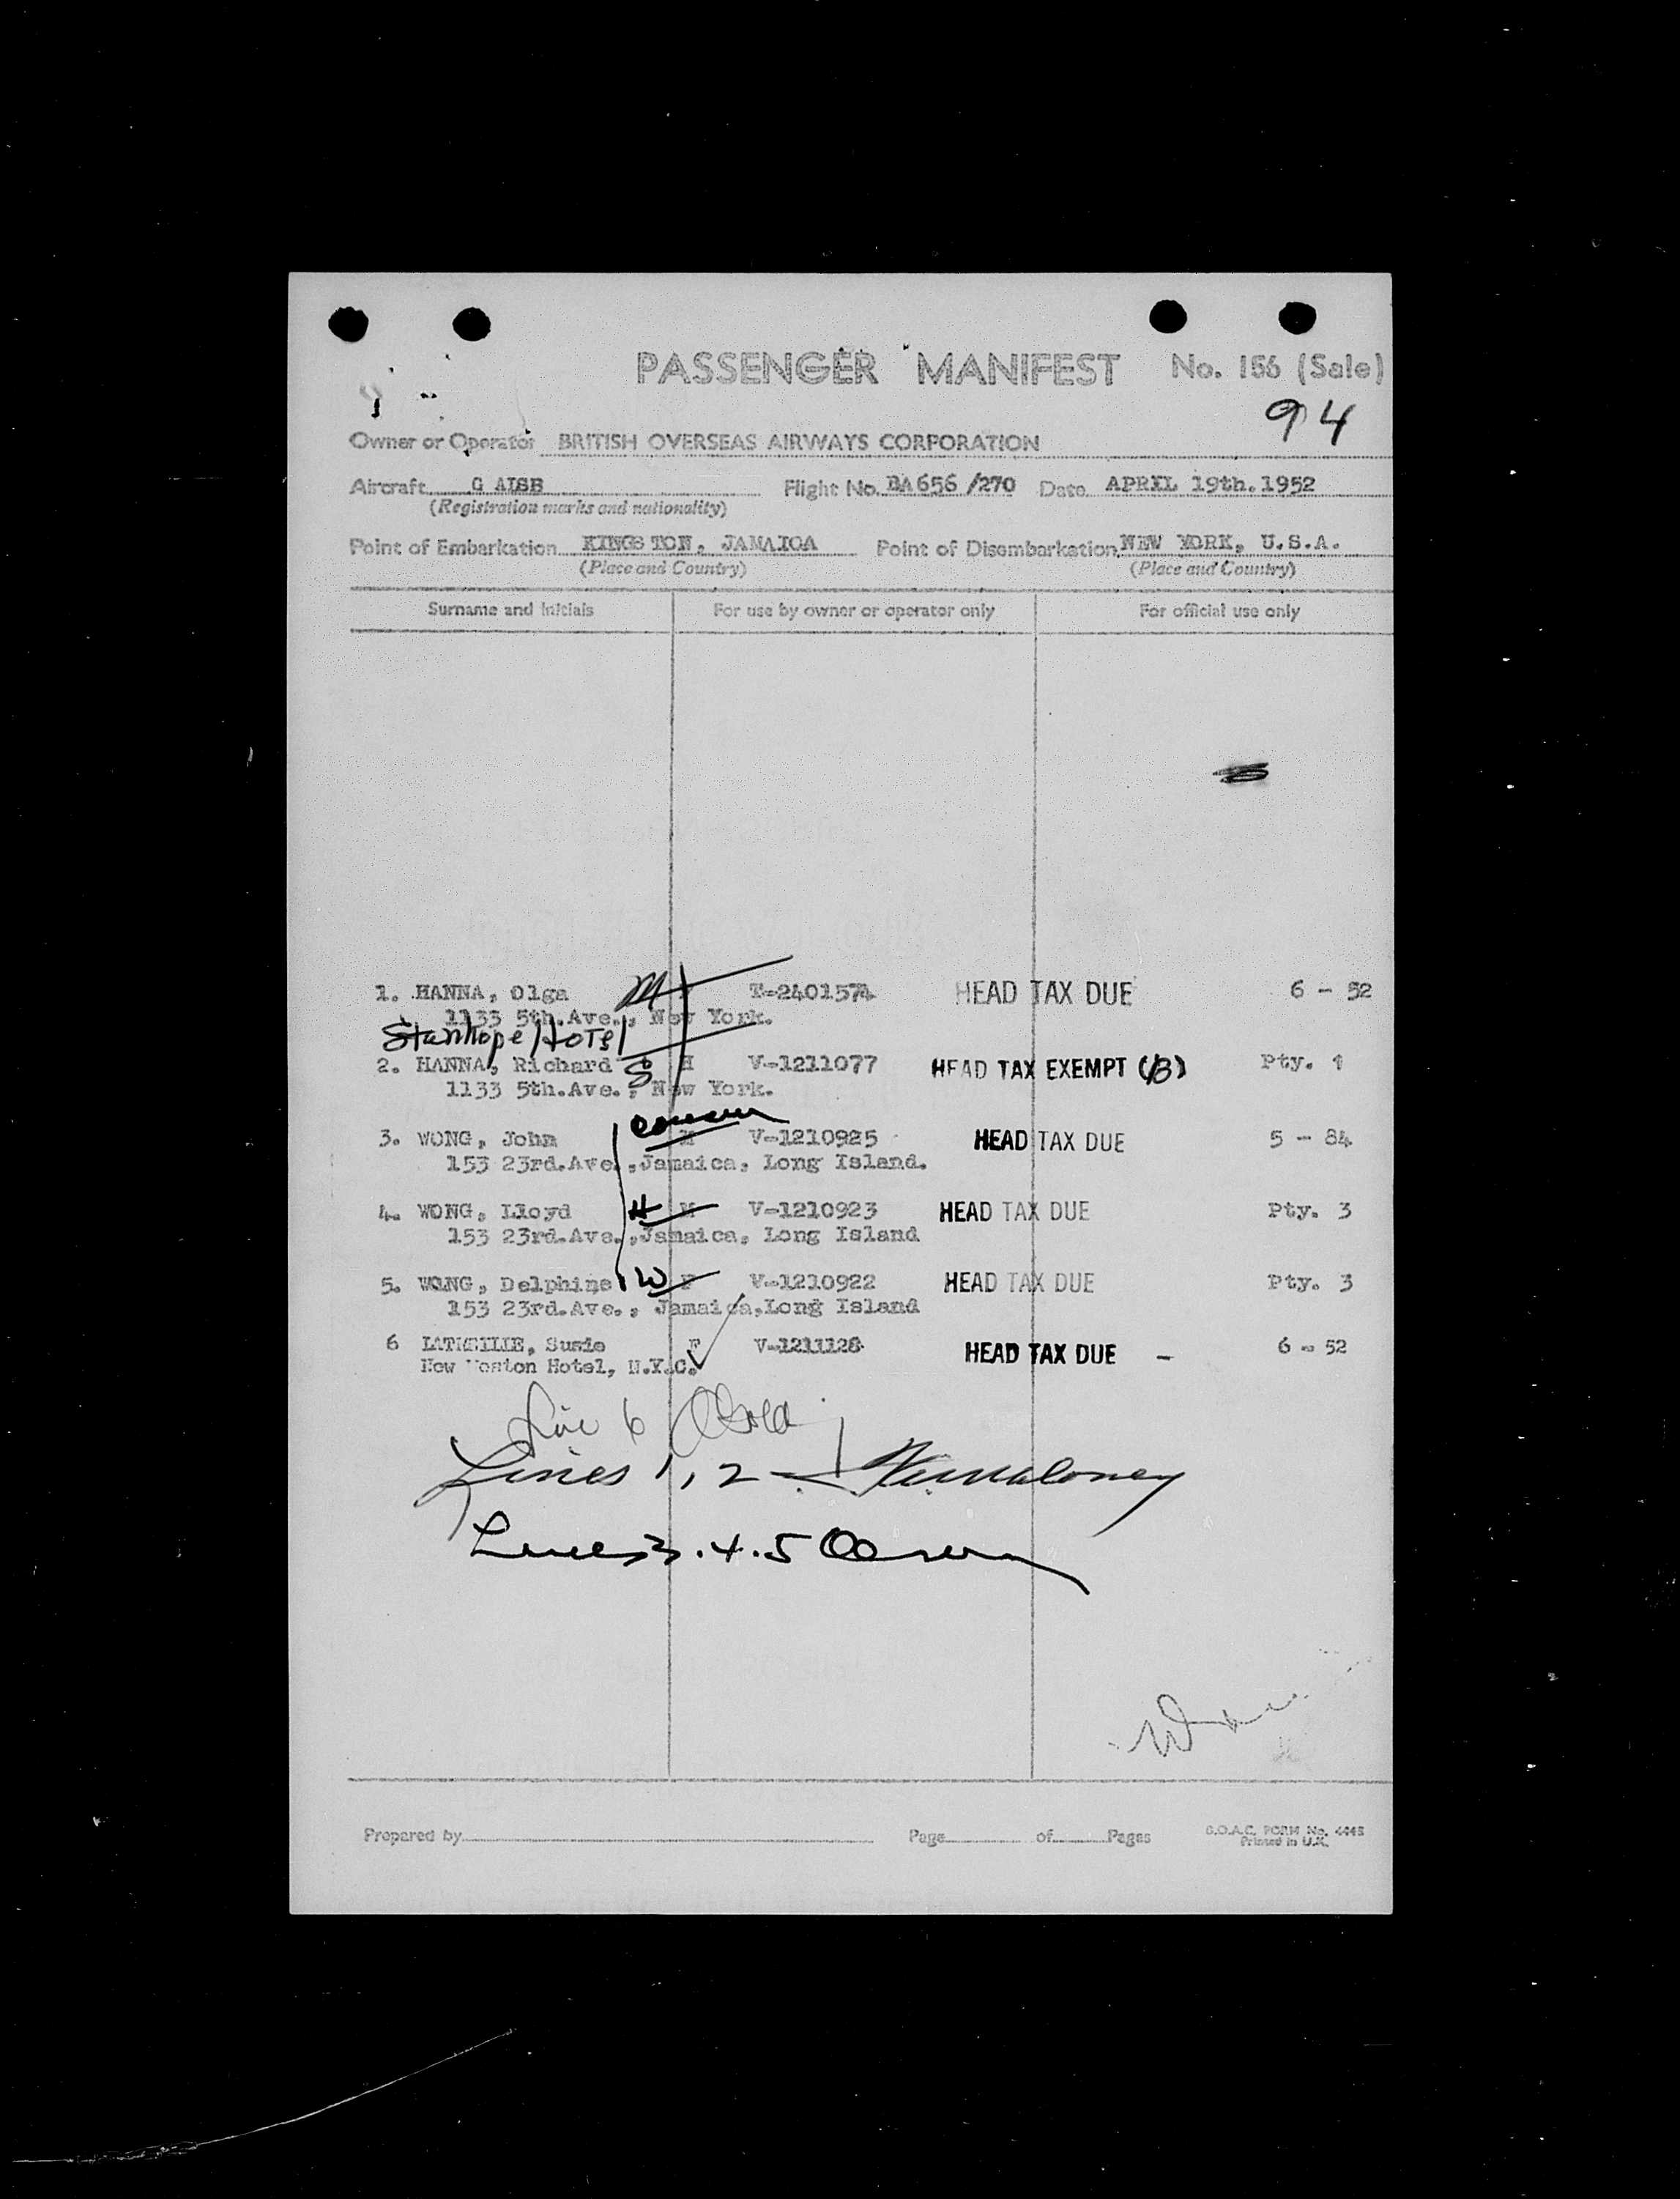 PASSENGER MANIFEST No. 156 (Sale)
94
Owner or Operator BRITISH OVERSEAS AIRWAYS CORPORATION
Aircraft G AISB Flight No. BA656 /270 Date APRIL 19th. 1952
(Registration marks and nationality)
Point of Embarkation KINGSTON, JAMAICA Point of Disembarkation NEW YORK, U.S.A.
(Place and Country) (Place and Country)
Surname and Initials For use by owner or operator only For official use only
1. HANNA, Olga M T-2401574 HEAD TAX DUE 6 - 52
1133 5th.Ave., New York.
Stanhope Hotel
2. HANNA, Richard S M V-1211077 HEAD TAX EXEMPT (B) Pty. 1
1133 5th.Ave., New York.
3. WONG, John M V-1210925 HEAD TAX DUE 5 - 84
153 23rd.Ave.,Jamaica, Long Island.
4. WONG, Lloyd H M V-1210923 HEAD TAX DUE Pty. 3
153 23rd.Ave.,Jamaica, Long Island
5. WONG, Delphine W F V-1210922 HEAD TAX DUE Pty. 3
153 23rd.Ave., Jamaica,Long Island
6 Susie F V-1211128 HEAD TAX DUE - 6 - 52
New Weston Hotel, N.Y.C.
Line 6
Lines 1, 2
Lines 3.4.5
Prepared by Page of Pages B.O.A.C. FORM No. 4445
Printed in U.K.